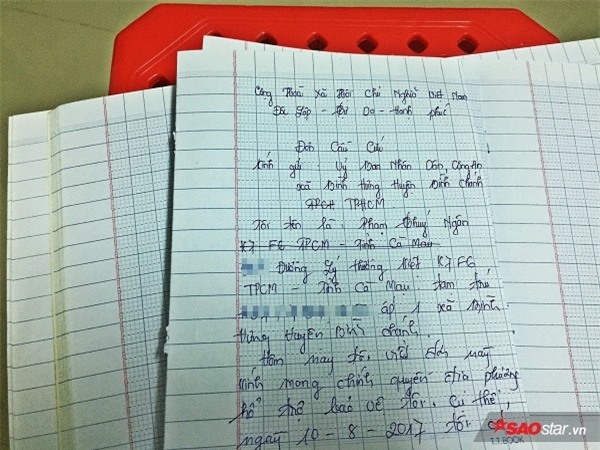 Cộng Hoà Xã Hội Chủ Nghĩa Việt Nam
Độc Lập - Tự Do - Hạnh phúc
Đơn Cầu Cứu
Kính gửi Uỷ Ban Nhân Dân, Công An
xã Bình Hưng Huyện Bình Chánh
TPCM TPHCM
Tôi tên là: Phạm Thuý Ngân
K7 F6 TPCM - Tỉnh Cà Mau
Đường Lý Thường Kiệt K7 F6
TPCM - Tỉnh Cà Mau tạm trú
ấp 1 xã Bình
Hưng Huyện Bình Chánh.
Hôm nay tôi viết đơn này
kính mong chính quyền địa phương
hổ trợ bảo vệ tôi. Cụ thể,
ngày 10-8-2017 tôi có,
SAOstar.vn
T.T.BOOK